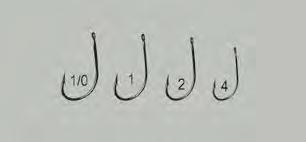 1/0 1 2 4